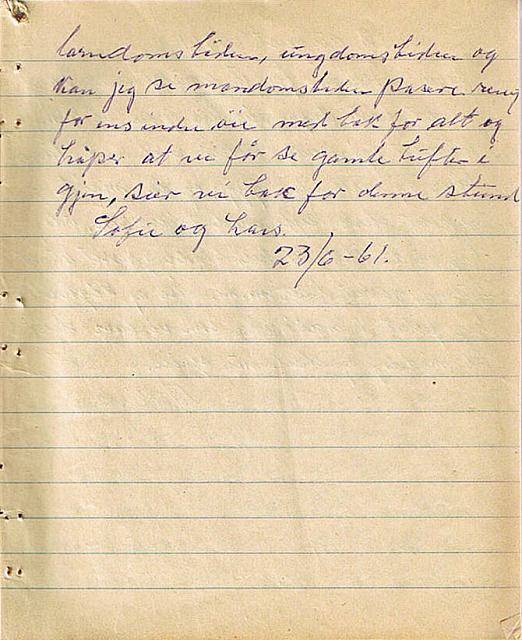 barndomstiden, ungdomstiden og
kan jeg se mandomstiden pasere
for ens indre øie med tak for alt og
håper at vi får se gamle tufter i
gjen, sier vi tak for denne stund
Sofie og Lars.
23/6-61.